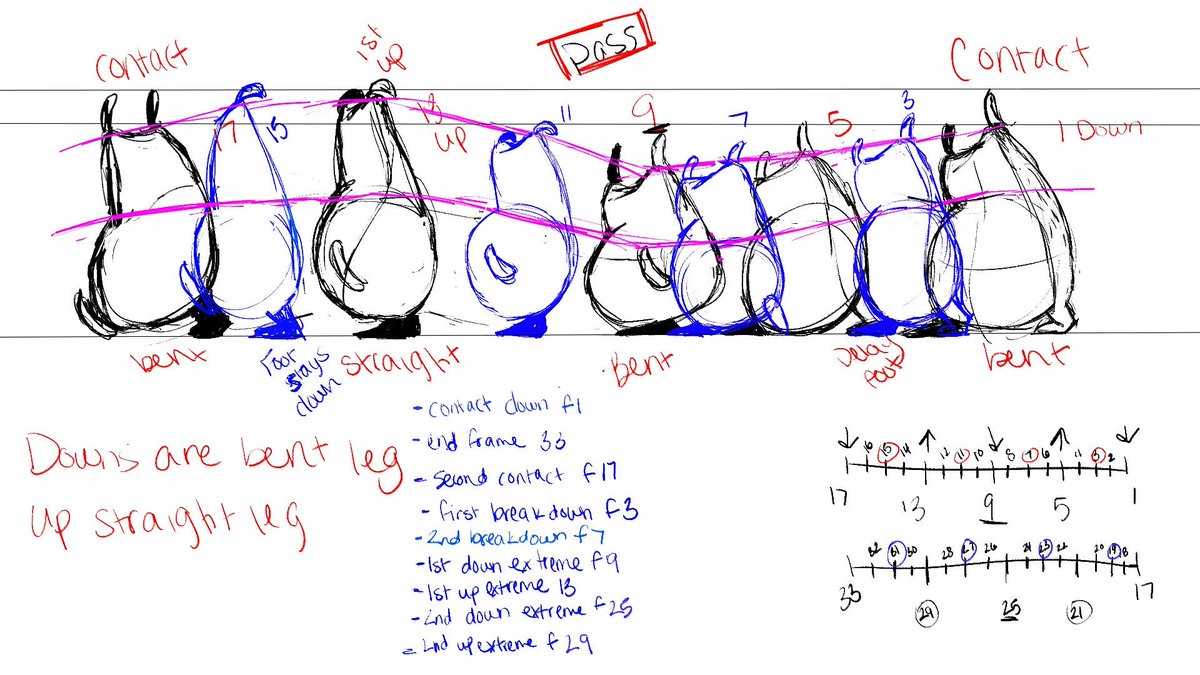 contact
1st
up
pass
Contact
17
15
13
up
11
9
7
5
3
1 Down
bent
Foot
stays
down
straight
Bent
Delay
foot
bent
Downs are bent leg
up straight leg
- contact down f1
- end frame 33
- second contact f17
- first breakdown f3
- 2nd breakdown f7
- 1st down extreme f9
- 1st up extreme 13
- 2nd down extreme f25
= 2nd up extreme f29
16 15 14 12 11 10 8 7 6
2
17 13 9 5 1
32 31 30 28 27 26 24 23 22 20 19 18
33 29 25 21 17